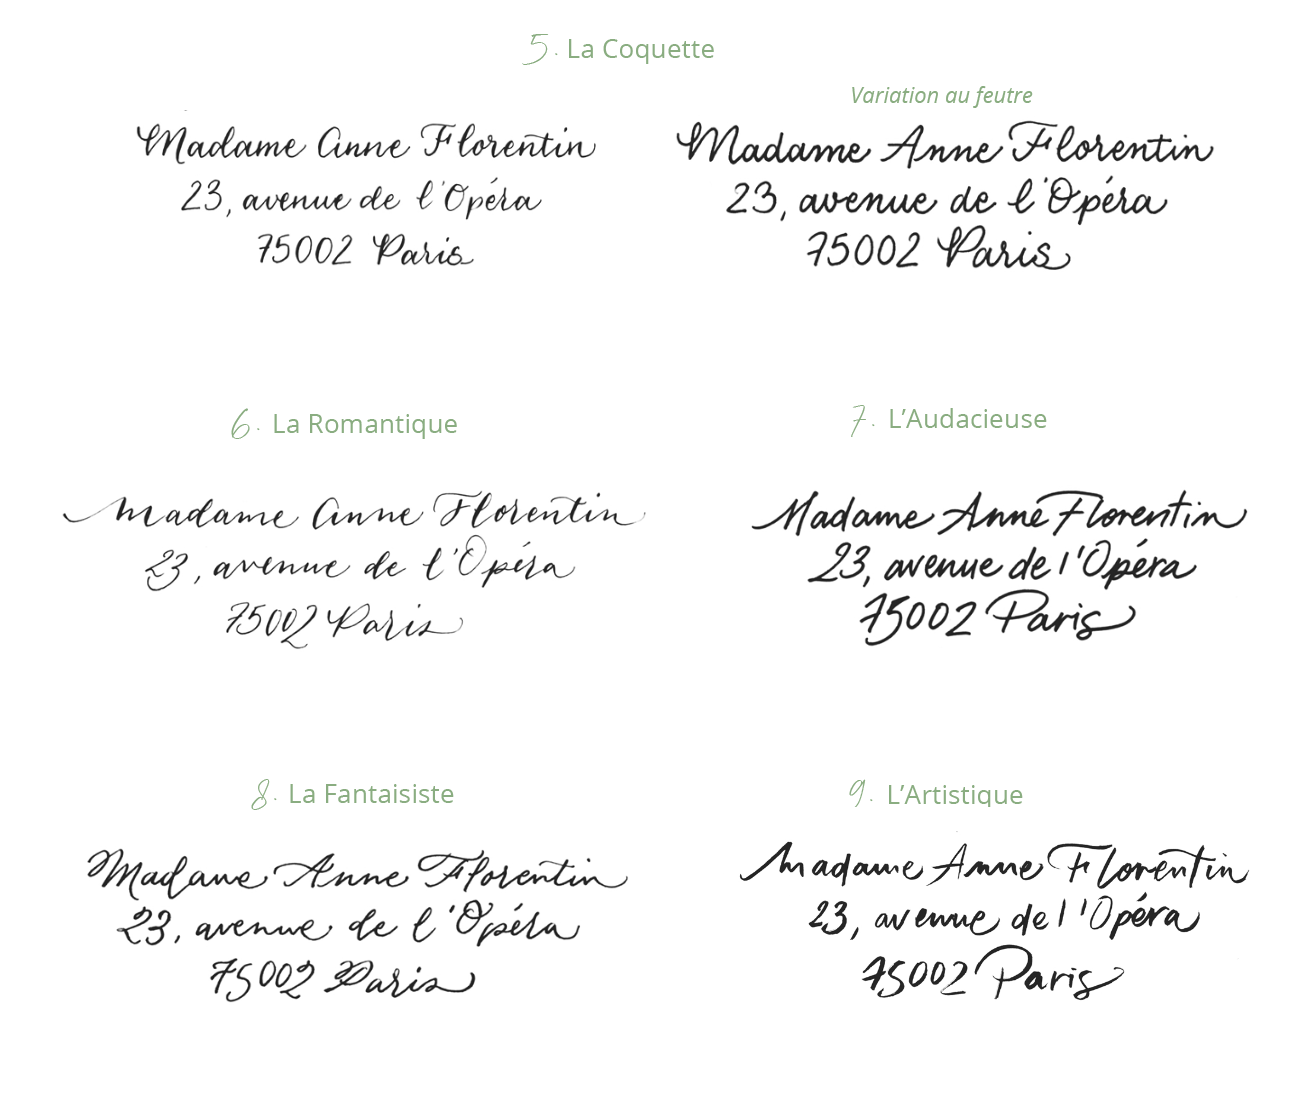 5. La Coquette
Madame Anne Florentin
23, avenue de l'Opéra
75002 Paris
Variation au feutre
Madame Anne Florentin
23, avenue de l'Opéra
75002 Paris
6. La Romantique
Madame Anne Florentin
23, avenue de l'Opéra
75002 Paris
7. L’Audacieuse
Madame Anne Florentin
23, avenue de l'Opéra
75002 Paris
8. La Fantaisiste
Madame Anne Florentin
23, avenue de l'Opéra
75002 Paris
9. L’Artistique
Madame Anne Florentin
23, avenue de l'Opéra
75002 Paris